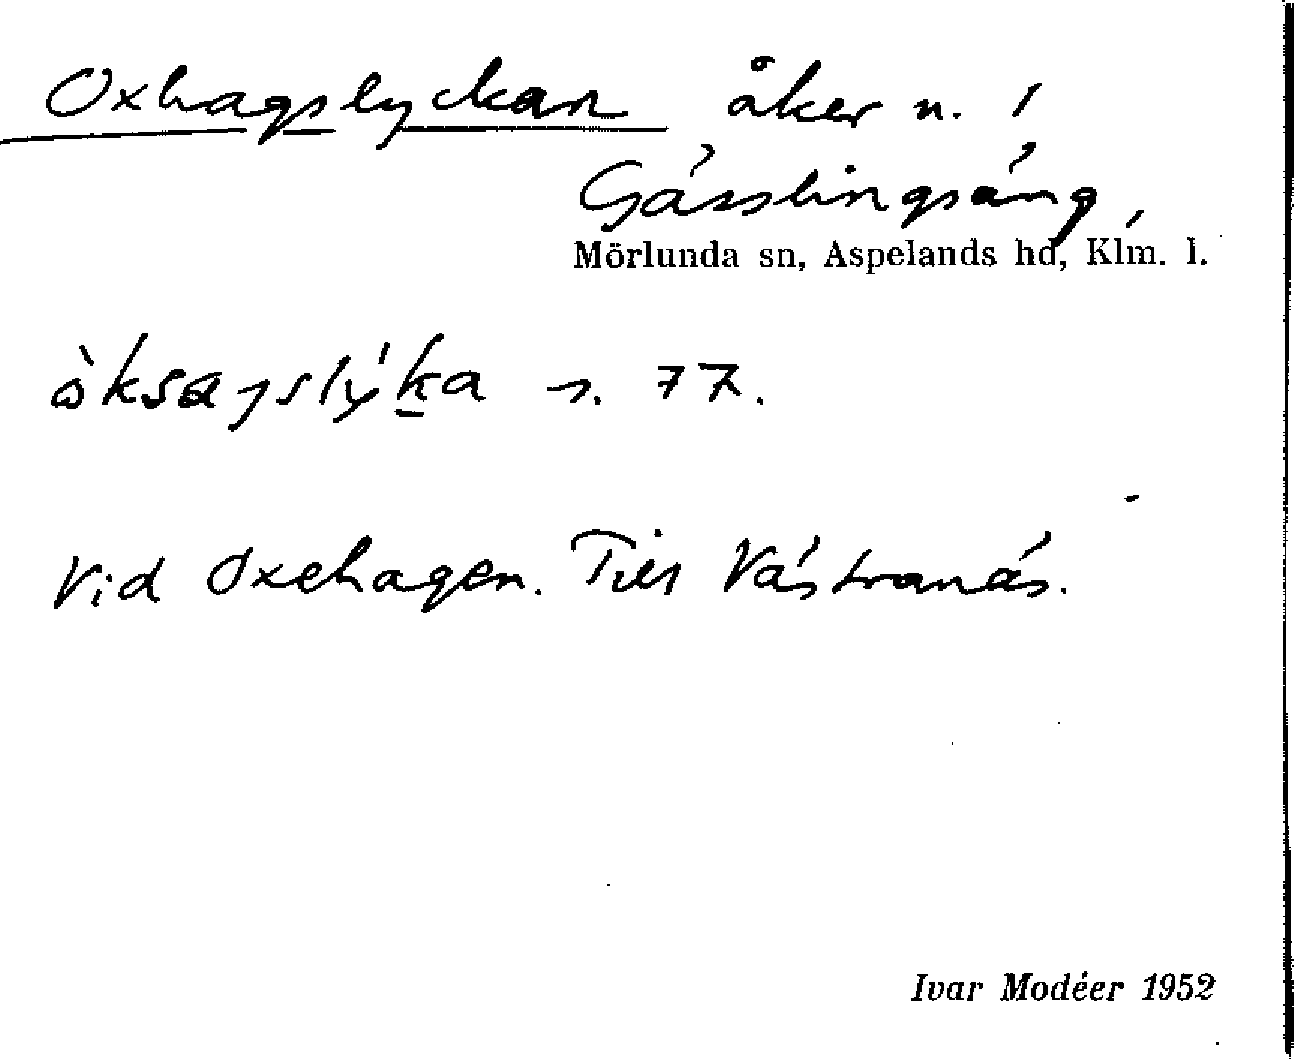 Oxhagslyckan åker n. 1
Gässlingsäng,
Mörlunda sn, Aspelands hd, Klm. l.
òksagslýka n. 77.
Vid Oxehagen. Till Västranäs.
Ivar Modéer 1952